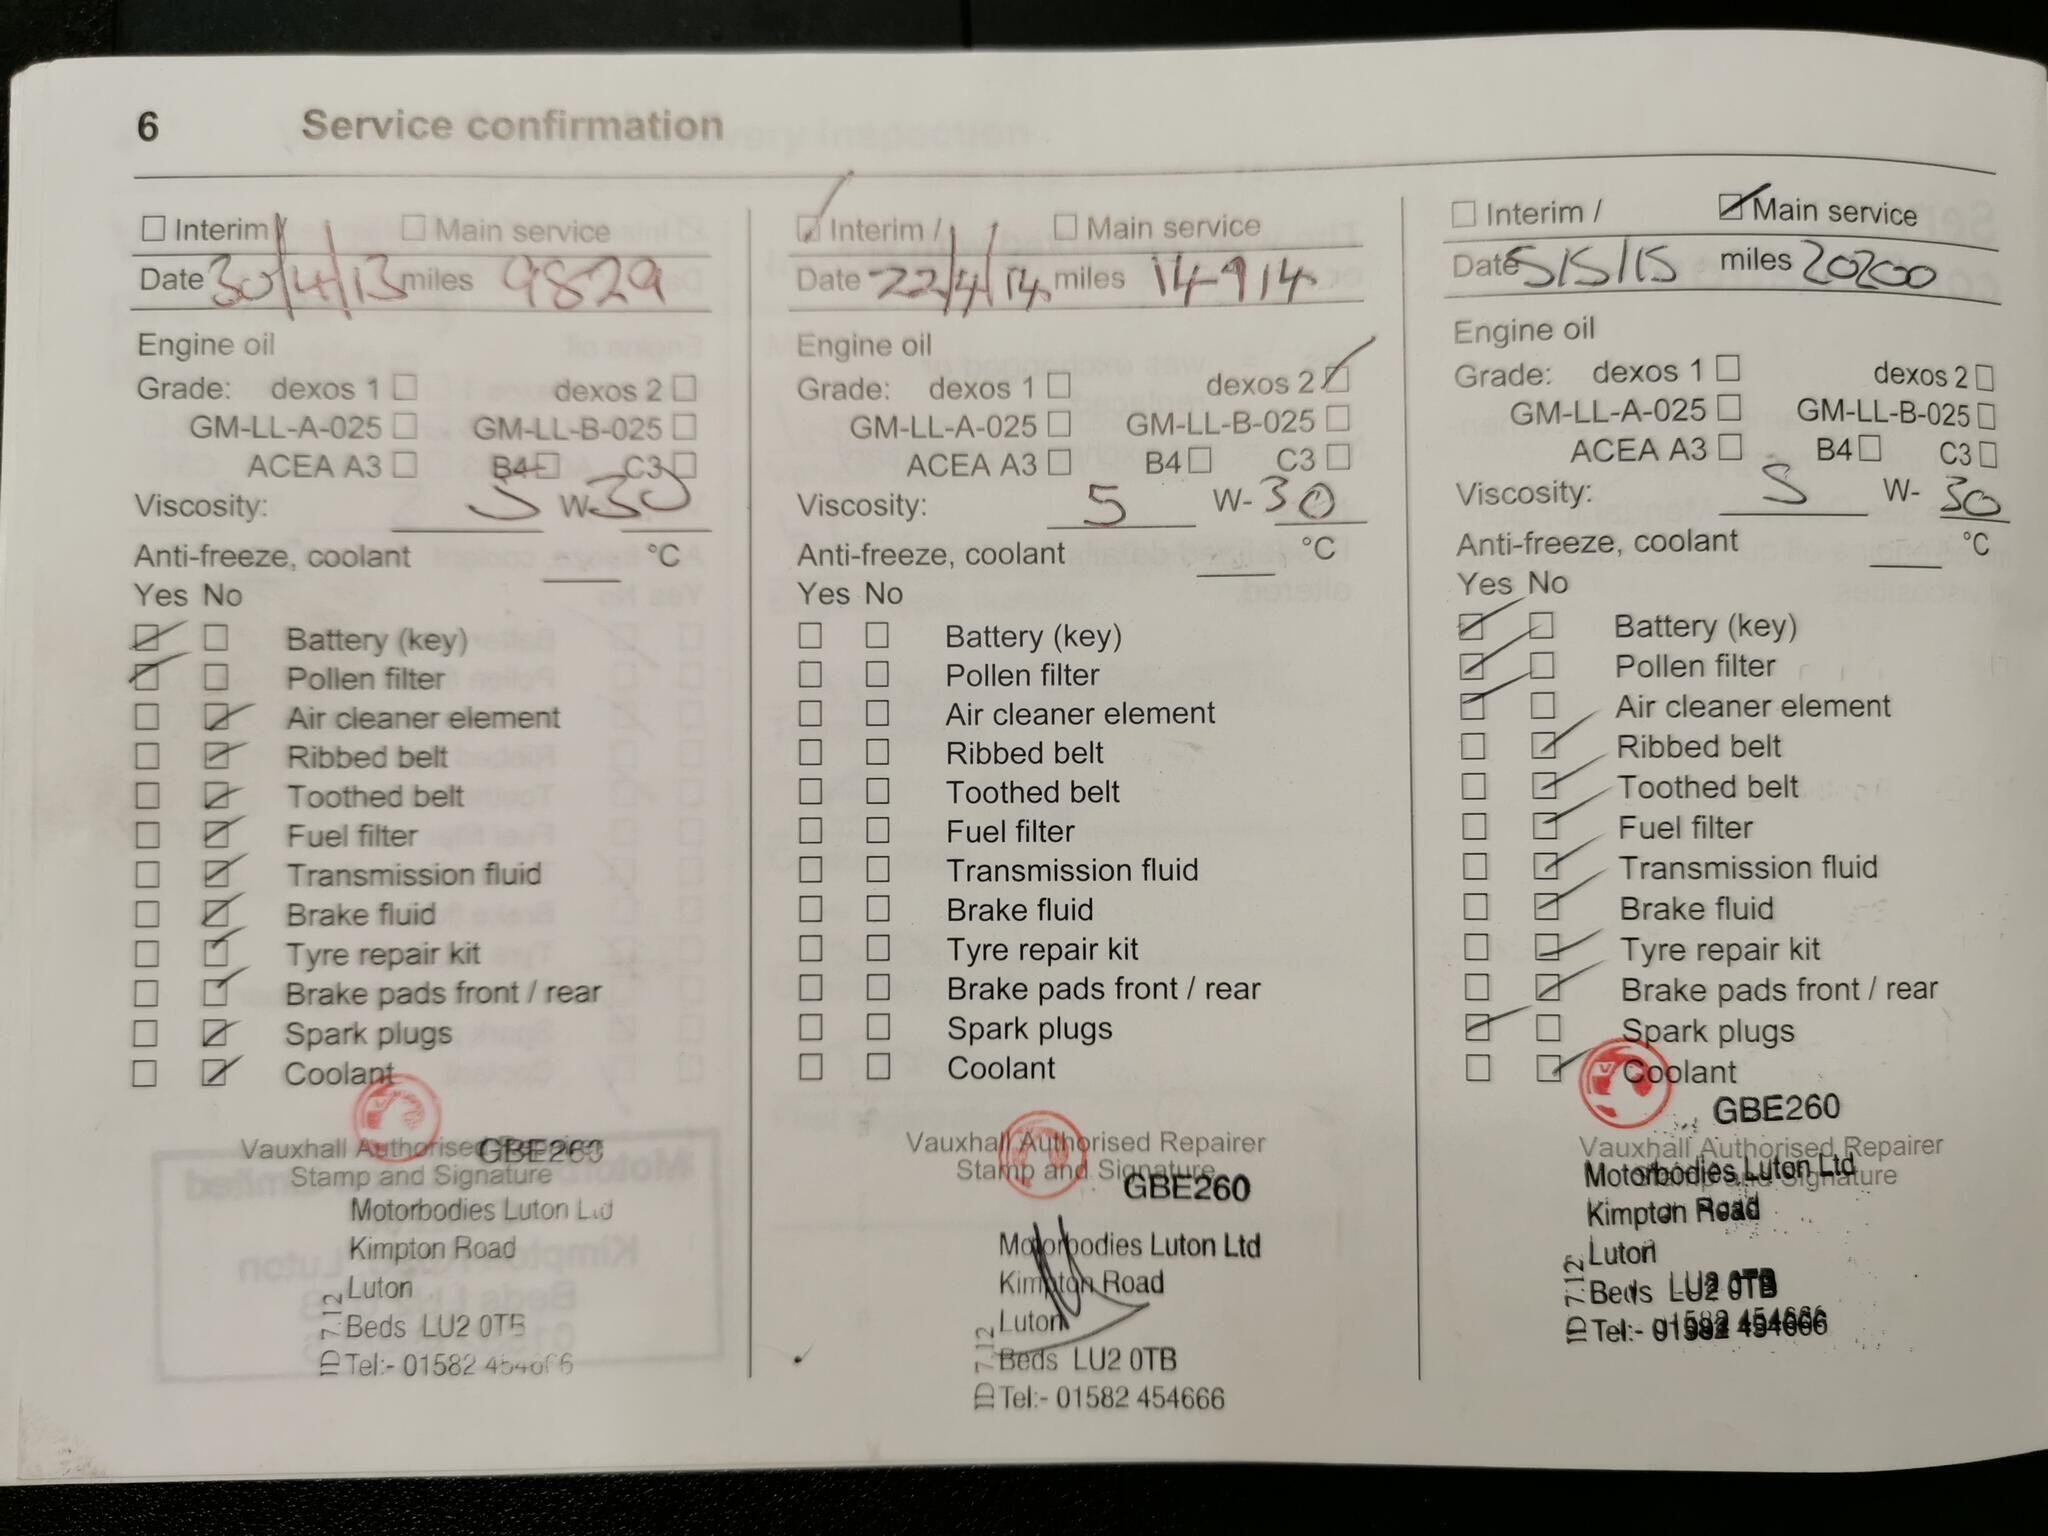 6 Service confirmation
Interim / Main service
Date 30/4/13 miles 9829
Engine oil
Grade: dexos 1 dexos 2
GM-LL-A-025 GM-LL-B-025
ACEA A3 B4 C3
Viscosity: 5 W-30
Anti-freeze, coolant °C
Yes No
Battery (key)
Pollen filter
Air cleaner element
Ribbed belt
Toothed belt
Fuel filter
Transmission fluid
Brake fluid
Tyre repair kit
Brake pads front / rear
Spark plugs
Coolant
GBE260
Vauxhall Authorised Repairer
Stamp and Signature
Motorbodies Luton Ltd
Kimpton Road
Luton
Beds LU2 0TB
Tel:- 01582 454666
ID 7.12
Interim / Main service
Date 22/4/14 miles 14914
Engine oil
Grade: dexos 1 dexos 2
GM-LL-A-025 GM-LL-B-025
ACEA A3 B4 C3
Viscosity: 5 W-30
Anti-freeze, coolant °C
Yes No
Battery (key)
Pollen filter
Air cleaner element
Ribbed belt
Toothed belt
Fuel filter
Transmission fluid
Brake fluid
Tyre repair kit
Brake pads front / rear
Spark plugs
Coolant
Vauxhall Authorised Repairer
Stamp and Signature
GBE260
Motorbodies Luton Ltd
Kimpton Road
Luton
Beds LU2 0TB
Tel:- 01582 454666
ID 7.12
Interim / Main service
Date 5/5/15 miles 20200
Engine oil
Grade: dexos 1 dexos 2
GM-LL-A-025 GM-LL-B-025
ACEA A3 B4 C3
Viscosity: 5 W-30
Anti-freeze, coolant °C
Yes No
Battery (key)
Pollen filter
Air cleaner element
Ribbed belt
Toothed belt
Fuel filter
Transmission fluid
Brake fluid
Tyre repair kit
Brake pads front / rear
Spark plugs
Coolant
GBE260
Vauxhall Authorised Repairer
Stamp and Signature
Motorbodies Luton Ltd
Kimpton Road
Luton
Beds LU2 0TB
Tel:- 01582 454666
ID 7.12